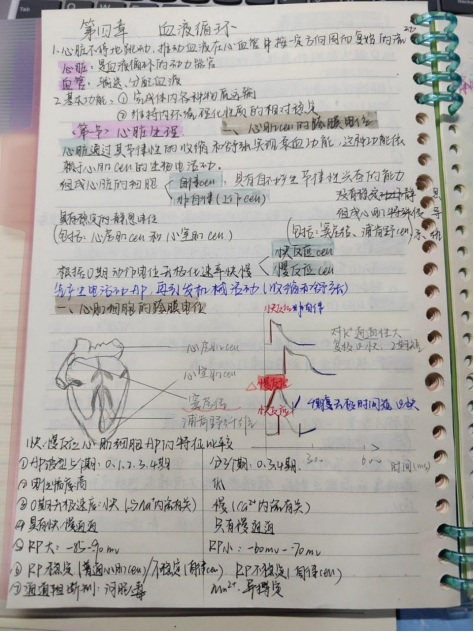 第四章 血液循环
1.心脏不停地跳动,推动血液在心血管中按一定方向周而复始的流动
心脏:是血液循环的动力器官
血管:输送、分配血液
2.基本功能:①完成体内各种物质运输
②维持内环境理化性质的相对稳定
第一节 心脏生理 一、心肌cen的跨膜电位
心脏通过其节律性的收缩和舒张实现泵血功能,这种功能依
赖于心肌cen的生物电活动。
组成心脏的细胞 自律cen:具有自动产生节律性兴奋的能力
非自律(工作cen)
具有稳定的静息电位 组成心脏特殊传导
(包括:心房肌cen和心室肌cen) (包括:窦房结、浦肯野cen)系统
根据0期动作电位去极化速率快慢 快反应cen
慢反应cen
先产生电活动AP,再引发机械活动(收缩和舒张)
一、心肌细胞的跨膜电位
心房肌cen
心室肌cen
窦房结
浦肯野纤维
快反应非自律
对K⁺通透性大
慢反应
快反应
时间(ms)
1.快、慢反应心肌细胞AP的特征比较
①AP分5个期:0.1.2.3.4期 分3个期:0.3.4期
②电位幅度高 低
③0期去极速度:快(与Na⁺内流有关) 慢(Ca²⁺内流有关)
④具有快、慢通道 只有慢通道
⑤RP大:-85~-90mv RP小:-60mv~-70mv
⑥RP稳定(普通心肌cen)/不稳定(自律cen) RP不稳定(自律cen)
⑦通道阻断剂:河豚毒 Mn²⁺.异搏定